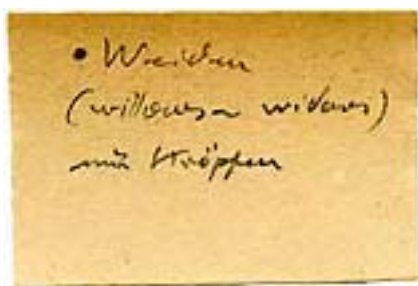 • Weiden
(willows widows)
mit Kröpfen